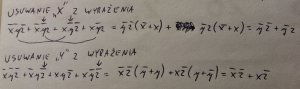 USUWANIE „X" Z WYRAŻENIA
x̄ȳz̄ + x̄yz̄ + xyz̄ + xȳz̄ = ȳz̄(x̄+x) + yz̄(x̄+x) = ȳz̄ + yz̄
USUWANIE „Y" Z WYRAŻENIA
x̄ȳz̄ + x̄yz̄ + xyz̄ + xȳz̄ = x̄z̄(ȳ+y) + xz̄(y+ȳ) = x̄z̄ + xz̄